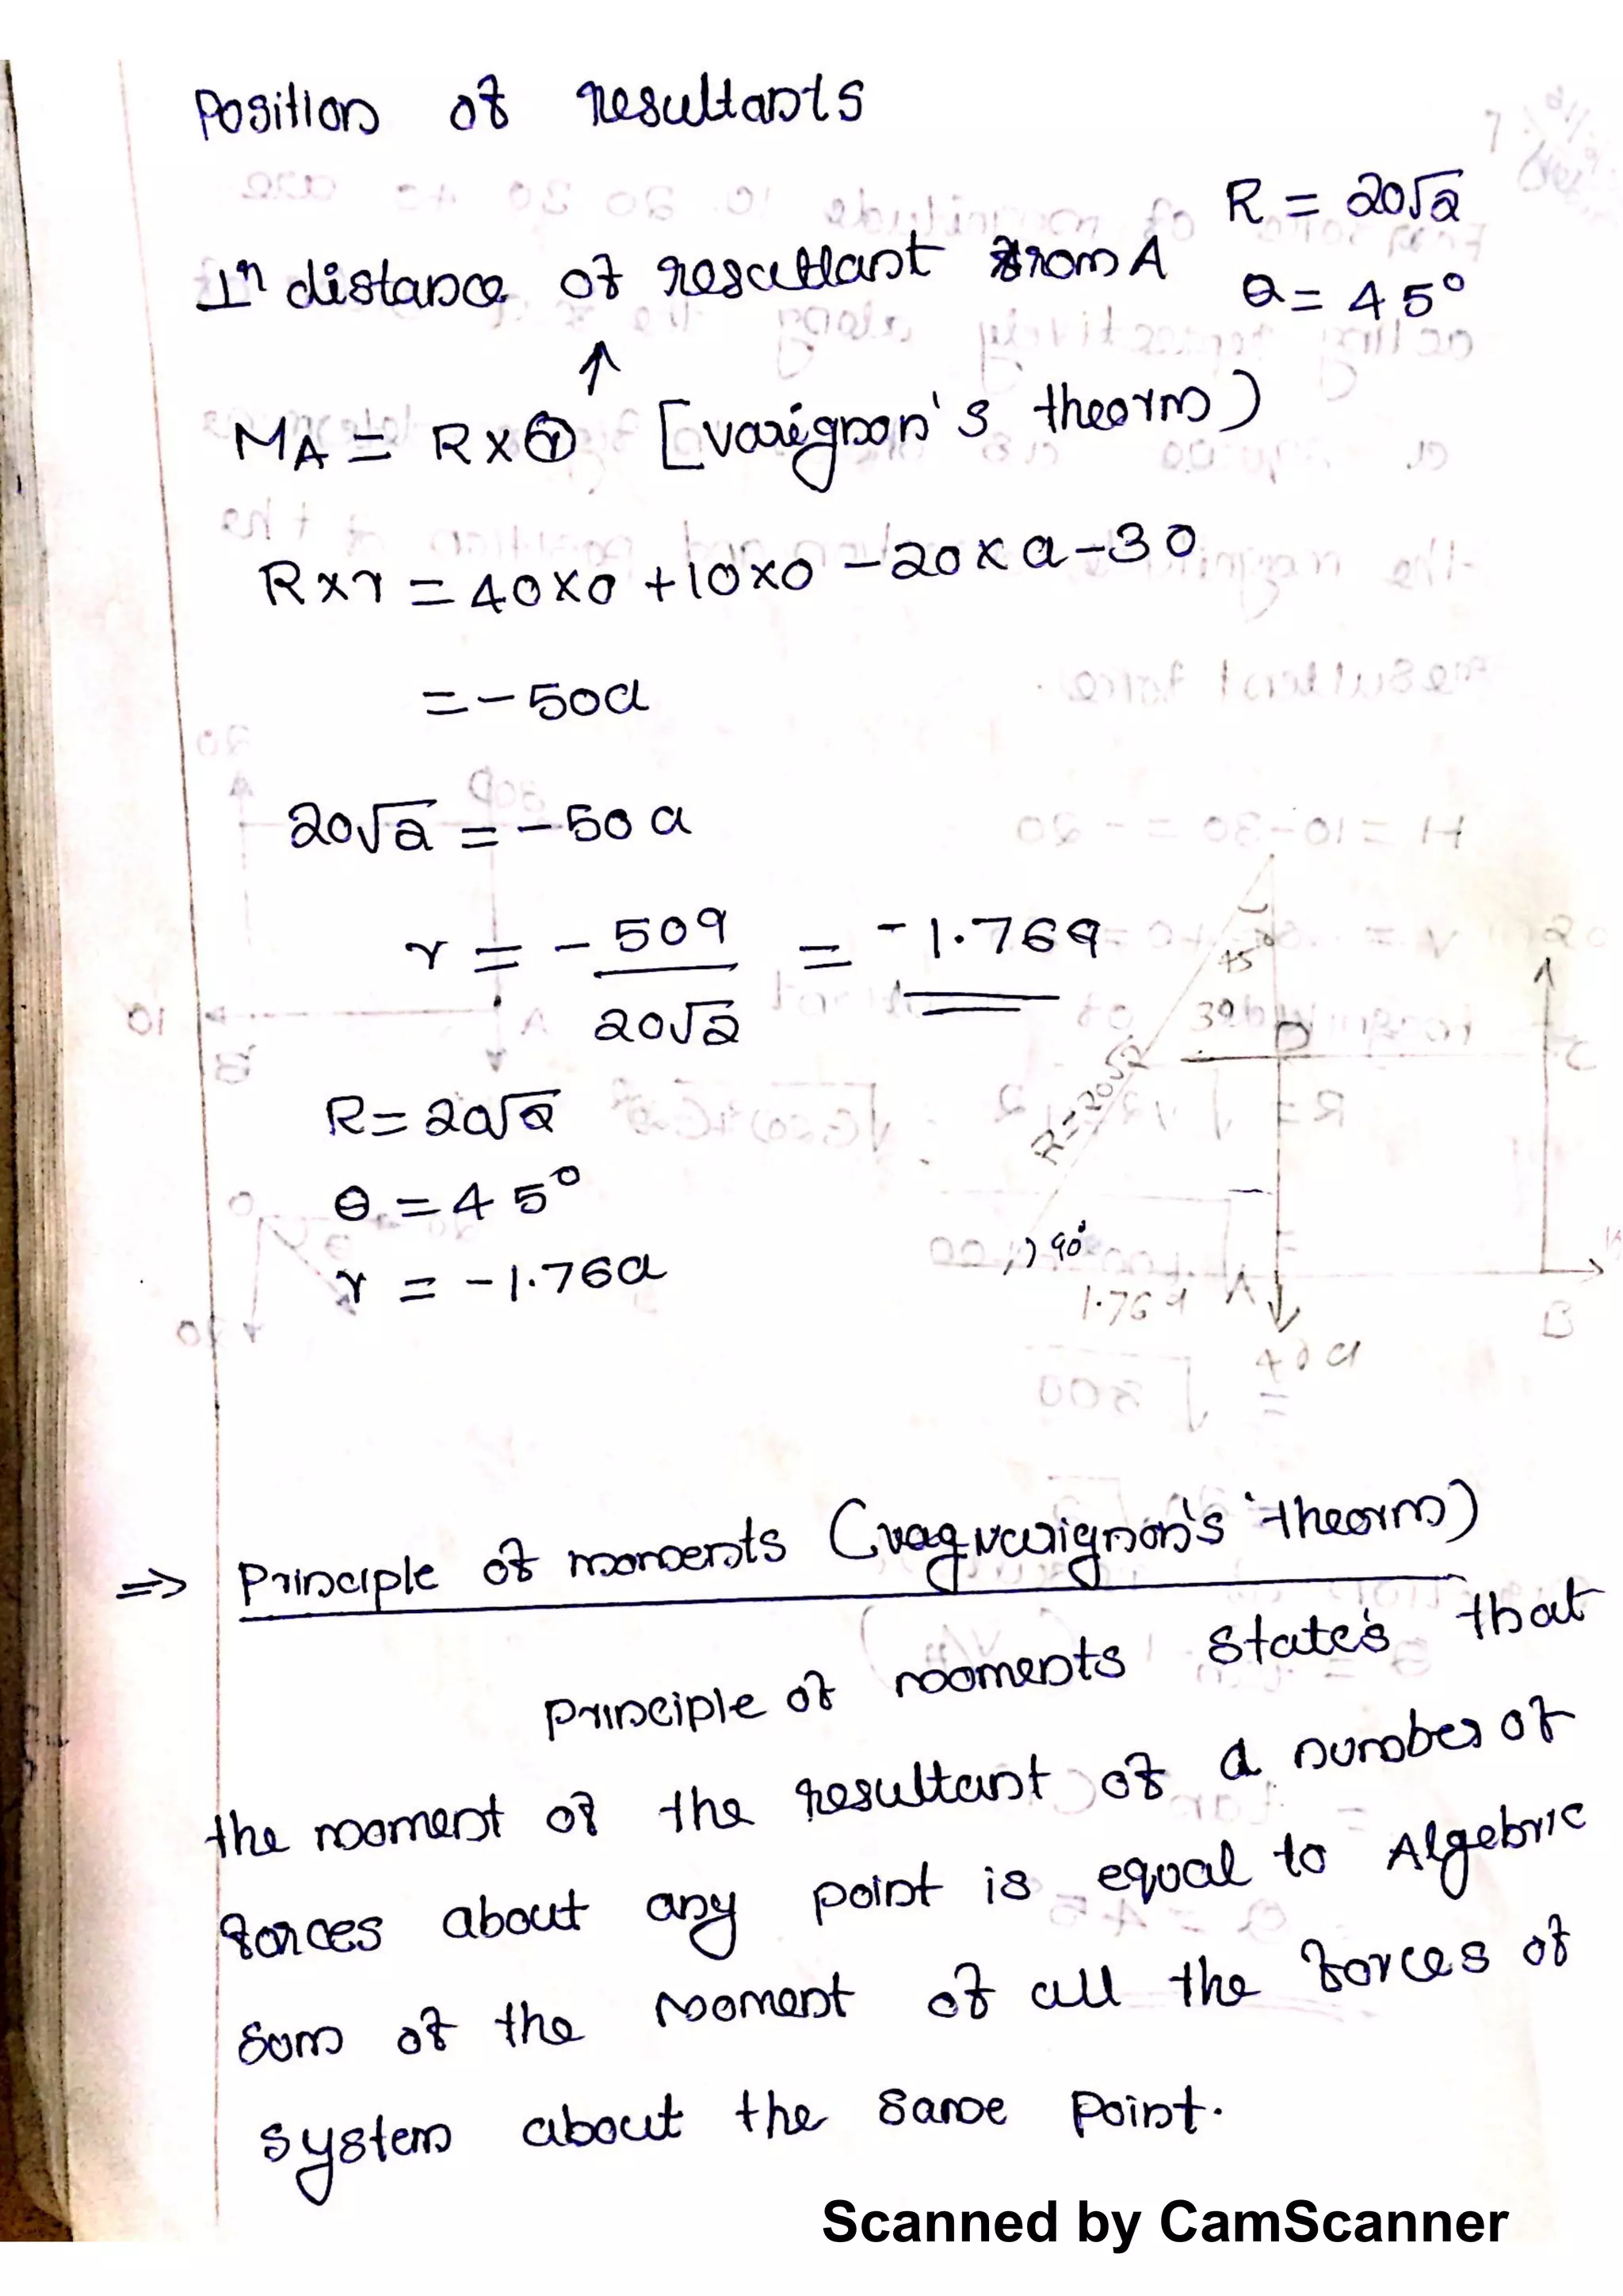 Position of resultants
R = 20√2
⊥r distance of resultant from A
θ = 45°
↑
MA = R×r [varignon's theorm)
R×r = 40×0 +10×0 -20×a-30
=-50a
20√2 = -50a
r = - 50a / 20√2 = -1.76a
R= 20√2
θ = 45°
r = -1.76a
45°
30
D
R=20√2
90°
1.76a
A
B
40a
⇒ Principle of moments (vagvarignon's theorm)
Principle of moments state's that
the moment of the resultant of a number of
forces about any point is equal to Algebric
sum of the moment of all the forces of
system about the same point.
Scanned by CamScanner